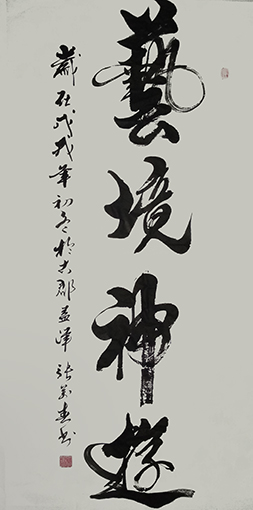 藝境神遊
歲在戊戌年初冬於古郡孟津張萬惠書